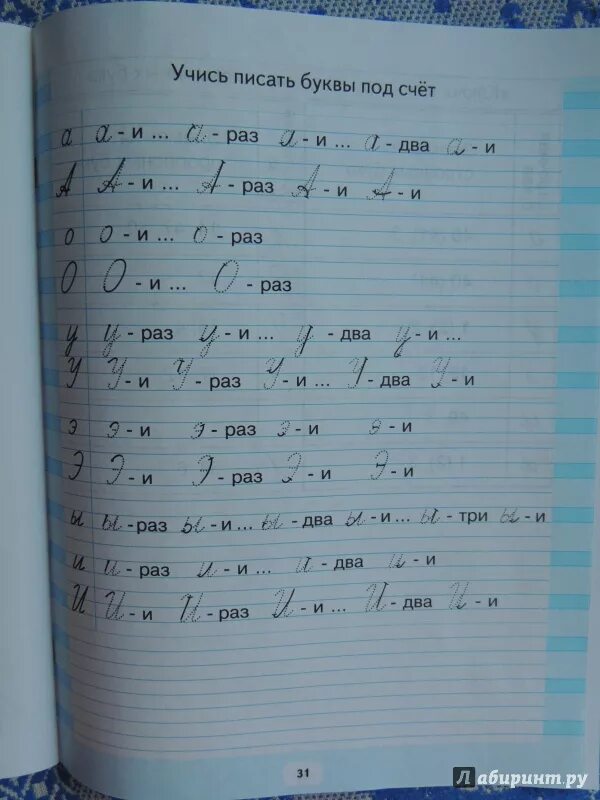 Учись писать буквы под счёт
а а - и ... а - раз а - и ... а - два а - и
А А - и ... А - раз А - и А - и
о о - и ... о - раз
О О - и ... О - раз
у у - раз у - и ... у - два у - и ...
У У - и У - раз У - и ... У - два У - и
э э - и э - раз э - и э - и
Э Э - и Э - раз Э - и Э - и
ы ы - раз ы - и ... ы - два ы - и ... ы - три ы - и
и и - раз и - и ... и - два и - и
И И - и И - раз И - и ... И - два И - и
31
Лабиринт.ру